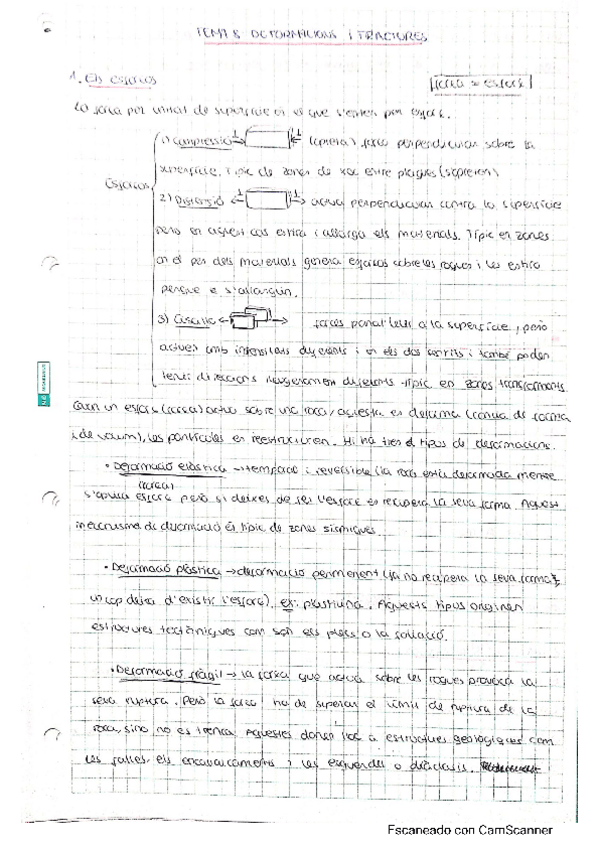 TEMA 8 DEFORMACIONS I FRACTURES
1. Els esforços
força = esforç
La força per unitat de superfície és el que s'entén per esforç.
Esforços
1) Compressió (apreta) força perpendicular sobre la
superfície. Típic de zones de xoc entre plaques (
2) Distensió actua perpendicular contra la superfície
però en aquest cas estira i allarga els materials. Típic en zones
on el pes dels materials genera esforços sobre les roques i les estira
perquè s'allarguin.
3) Cisalla forces paral·leles a la superfície, però
actuen amb intensitats diferents i en els dos sentits i també poden
tenir direccions lleugerament diferents. Típic en zones transformants
Quan un esforç (força) actua sobre una roca, aquesta es deforma (canvia de forma
i de volum), les partícules es reestructuren. Hi ha tres tipus de deformacions.
• Deformació elàstica → temporal i reversible (la roca està deformada mentre
(força)
s'aplica esforç però si deixes de fer l'esforç es recupera la seva forma. Aquest
mecanisme de deformació és típic de zones sísmiques.
• Deformació plàstica → deformació permanent (ja no recupera la seva forma
un cop deixa d'existir l'esforç). ex: plastilina. Aquests tipus originen
estructures tectòniques com són els plecs o la foliació.
• Deformació fràgil → la força que actua sobre les roques provoca la
seva ruptura. Però la força ha de superar el límit de ruptura de la
roca, sino no es trenca. Aquestes donen lloc a estructures geològiques com
les falles, els encavalcaments i les esquerdes o diàclasis.
Escaneado con CamScanner